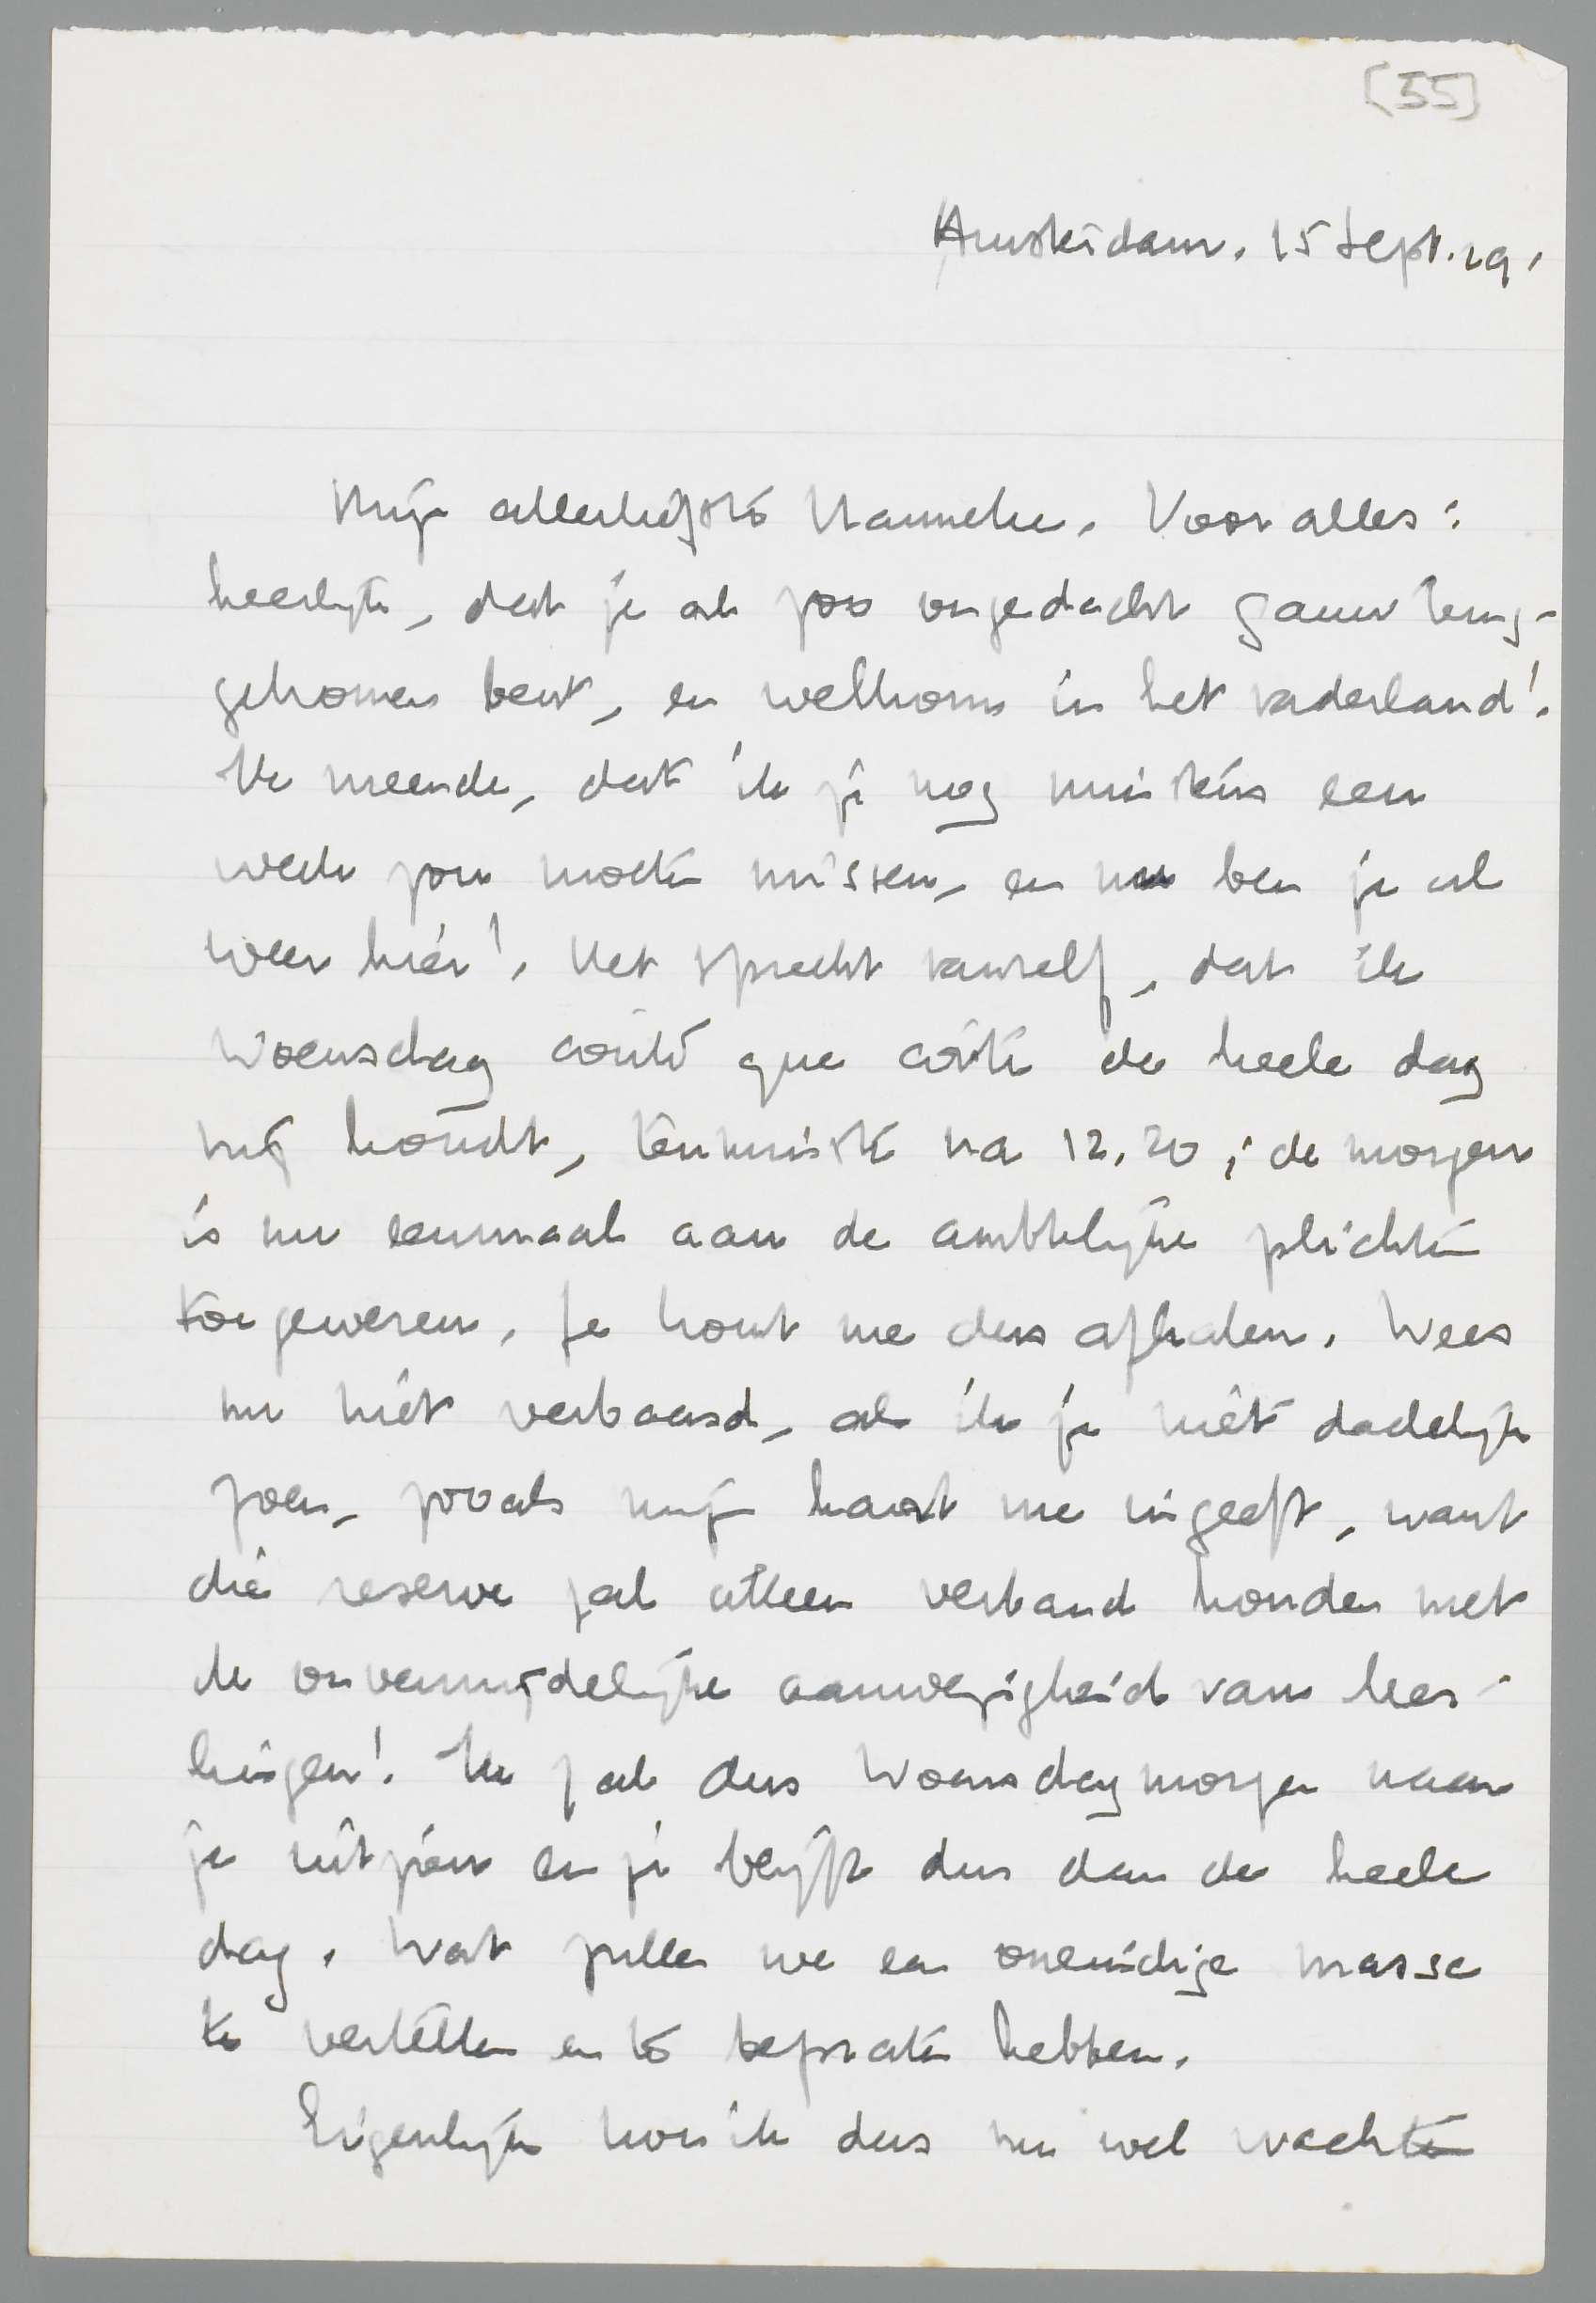 [55]
Amsterdam. 15 Sept. 29.
Mijn allerliefste Hanneke. Vóór alles:
heerlijk, dat je al zoo ongedacht gauw terug-
gekomen bent, en welkom in het vaderland!
Ik meende, dat ik je nog minstens een
week zou moeten missen, en nu ben je al
weer hier! Het spreekt vanzelf, dat ik
Woensdag coûte que coûte de heele dag
vrij houdt, tenminste na 12.20; de morgen
is nu eenmaal aan de ambtelijke plichten
toegewezen. Je komt me dus afhalen. Wees
nu niet verbaasd, als ik je niet dadelijk
zoen, zooals mijn hart me ingeeft, want
die reserve zal alleen verband houden met
de onvermijdelijke aanwezigheid van leer-
lingen! Ik zal dus Woensdagmorgen naar
je uitzien en je blijft dus dan de heele
dag. Wat zullen we een oneindige massa
te vertellen en te bepraten hebben.
Eigenlijk kon ik dus nu wel wachten